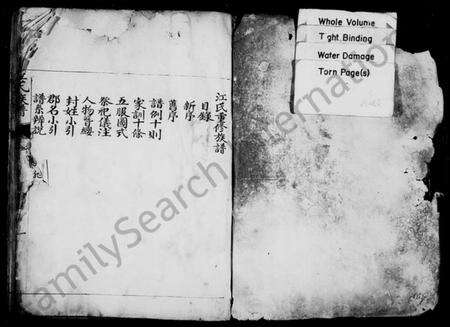 Whole Volume
T ght Binding
Water Damage
Torn Page(s)
江氏重修族譜
目錄
新序
舊序
譜例十則
家訓十條
五服圖式
祭祀儀注
人物晉纓
封姓小引
郡名小引
譜系辨說
FamilySearch International